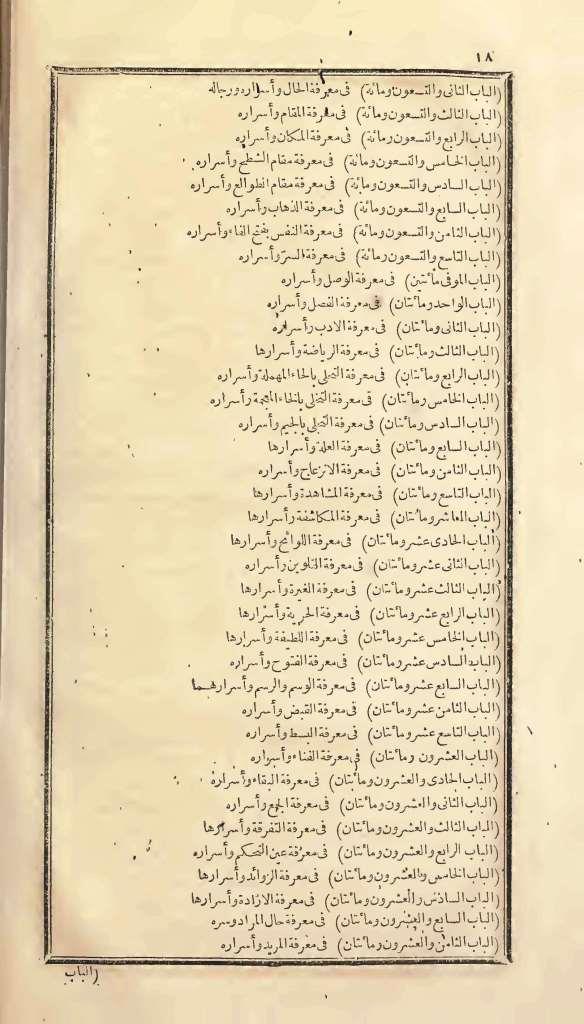 ١٨
(الباب الثانى والتسعون ومائة) فى معرفة الحال وأسراره ورجاله
(الباب الثالث والتسعون ومائة) فى معرفة المقام وأسراره
(الباب الرابع والتسعون ومائة) فى معرفة المكان وأسراره
(الباب الخامس والتسعون ومائة) فى معرفة مقام الشطح وأسراره
(الباب السادس والتسعون ومائة) فى معرفة مقام الطوالع وأسراره
(الباب السابع والتسعون ومائة) فى معرفة الذهاب وأسراره
(الباب الثامن والتسعون ومائة) فى معرفة النفس بفتح الفاء وأسراره
(الباب التاسع والتسعون ومائة) فى معرفة السر وأسراره
(الباب الموفى مائتين) فى معرفة الوصل وأسراره
(الباب الواحد ومائتان) فى معرفة الفصل وأسراره
(الباب الثانى ومائتان) فى معرفة الادب وأسراره
(الباب الثالث ومائتان) فى معرفة الرياضة وأسرارها
(الباب الرابع ومائتان) فى معرفة التحلى بالحاء المهملة وأسراره
(الباب الخامس ومائتان) فى معرفة التخلى بالخاء المعجمة وأسراره
(الباب السادس ومائتان) فى معرفة التجلى بالجيم وأسراره
(الباب السابع ومائتان) فى معرفة العلة وأسرارها
(الباب الثامن ومائتان) فى معرفة الانزعاج وأسراره
(الباب التاسع ومائتان) فى معرفة المشاهدة وأسرارها
(الباب العاشر ومائتان) فى معرفة المكاشفة وأسرارها
(الباب الحادى عشر ومائتان) فى معرفة اللوائح وأسرارها
(الباب الثانى عشر ومائتان) فى معرفة التلوين وأسراره
(الباب الثالث عشر ومائتان) فى معرفة الغيرة وأسرارها
(الباب الرابع عشر ومائتان) فى معرفة الحرية وأسرارها
(الباب الخامس عشر ومائتان) فى معرفة اللطيفة وأسرارها
(الباب السادس عشر ومائتان) فى معرفة الفتوح وأسراره
(الباب السابع عشر ومائتان) فى معرفة الوسم والرسم وأسرارهما
(الباب الثامن عشر ومائتان) فى معرفة القبض وأسراره
(الباب التاسع عشر ومائتان) فى معرفة البسط وأسراره
(الباب العشرون ومائتان) فى معرفة الفناء وأسراره
(الباب الحادى والعشرون ومائتان) فى معرفة البقاء وأسراره
(الباب الثانى والعشرون ومائتان) فى معرفة الجمع وأسراره
(الباب الثالث والعشرون ومائتان) فى معرفة التفرقة وأسرارها
(الباب الرابع والعشرون ومائتان) فى معرفة عين التحكم وأسراره
(الباب الخامس والعشرون ومائتان) فى معرفة الزوائد وأسرارها
(الباب السادس والعشرون ومائتان) فى معرفة الارادة وأسرارها
(الباب السابع والعشرون ومائتان) فى معرفة حال المراد وسره
(الباب الثامن والعشرون ومائتان) فى معرفة المريد وأسراره
(الباب